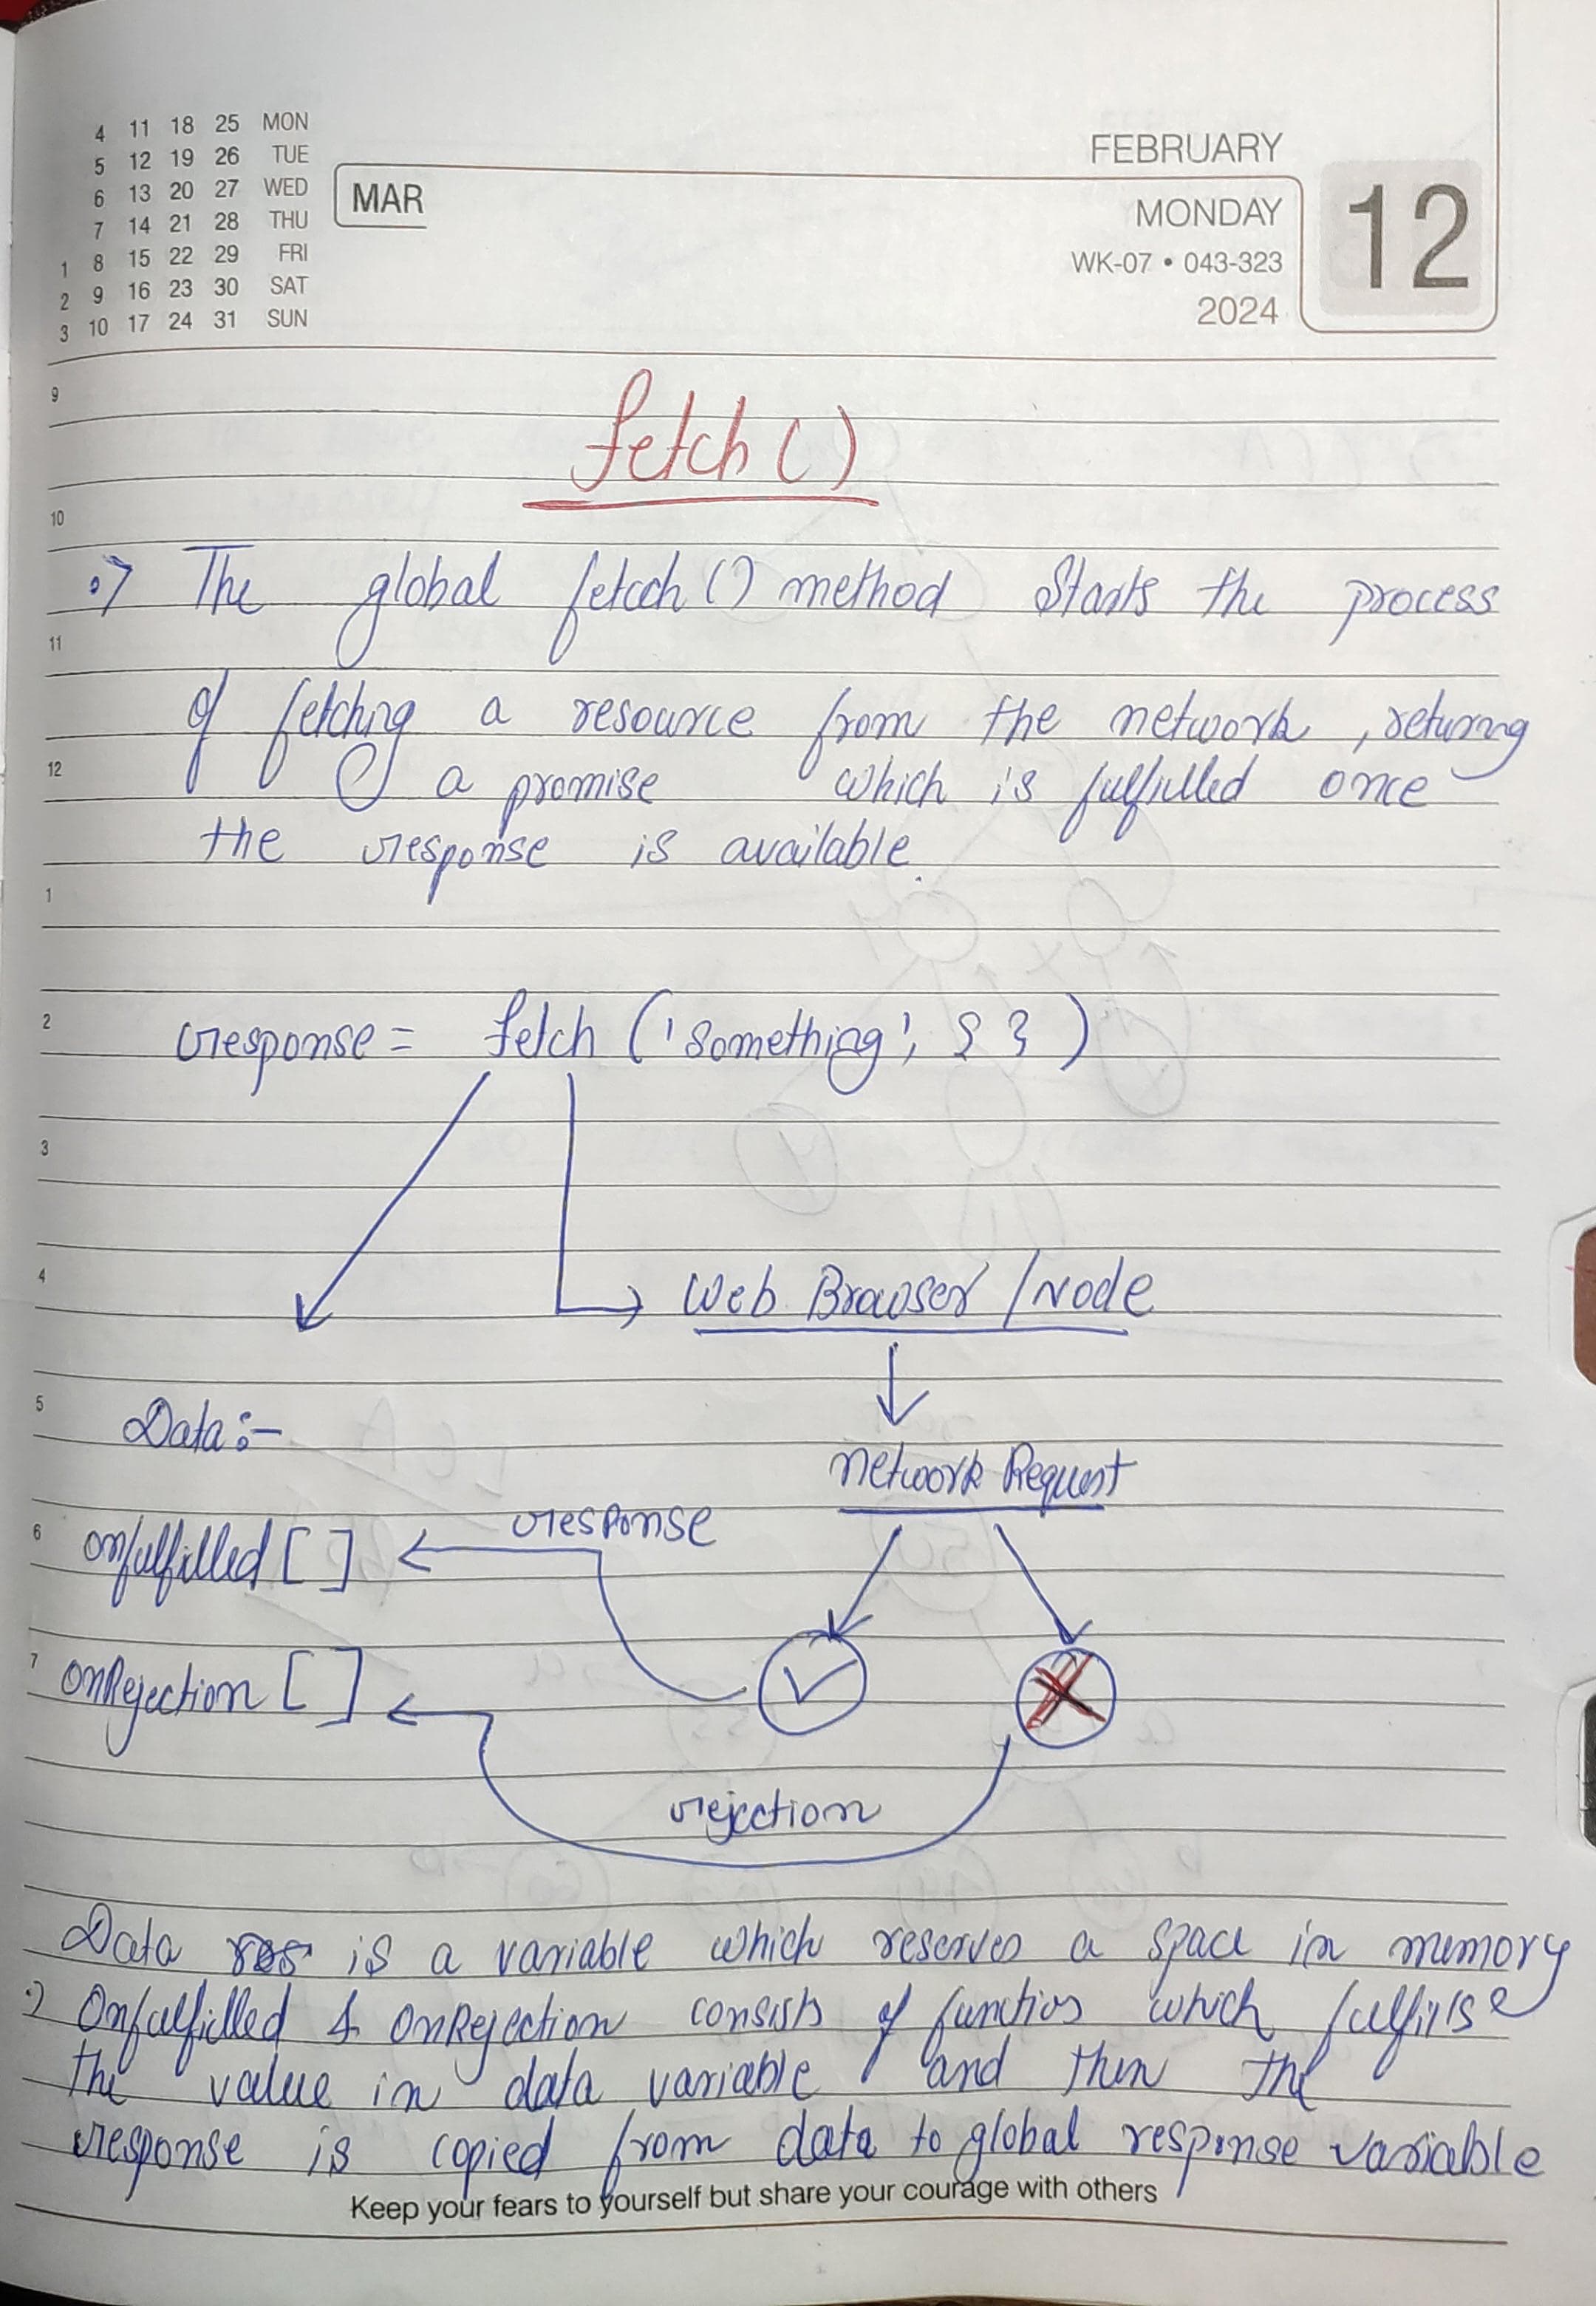 4 11 18 25 MON
5 12 19 26 TUE
6 13 20 27 WED
7 14 21 28 THU
1 8 15 22 29 FRI
2 9 16 23 30 SAT
3 10 17 24 31 SUN
MAR
FEBRUARY
MONDAY
WK-07 • 043-323
2024
12
9
fetch()
10
The global fetcch() method Starts the process
11
of fetching a resource from the network, returing
12
a promise which is fulfilled once
the response is available.
1
2
response = fetch ('something', { })
3
4
Web Browser / Node
5
Data :-
network Request
6
onfulfilled [ ]
response
7
onRejection [ ]
rejection
Data is a variable which reserves a space in memory
Onfulfilled & OnRejection consists of functios which fulfills
the value in data variable and then the
response is copied from data to global response variable
Keep your fears to yourself but share your courage with others